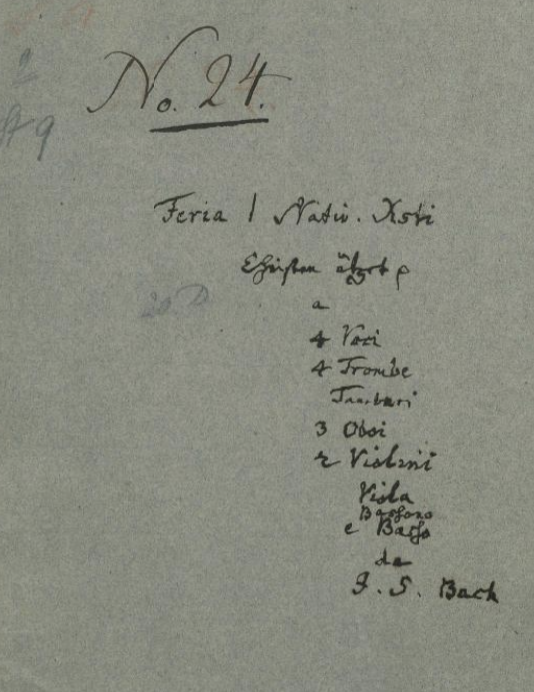 2
No. 24.
Feria 1 Nativ. Xsti
Christen ätzet
a
4 Voci
4 Trombe
Tamburi
3 Oboi
2 Violini
Viola
Bassono
e Basso
da
J. S. Bach